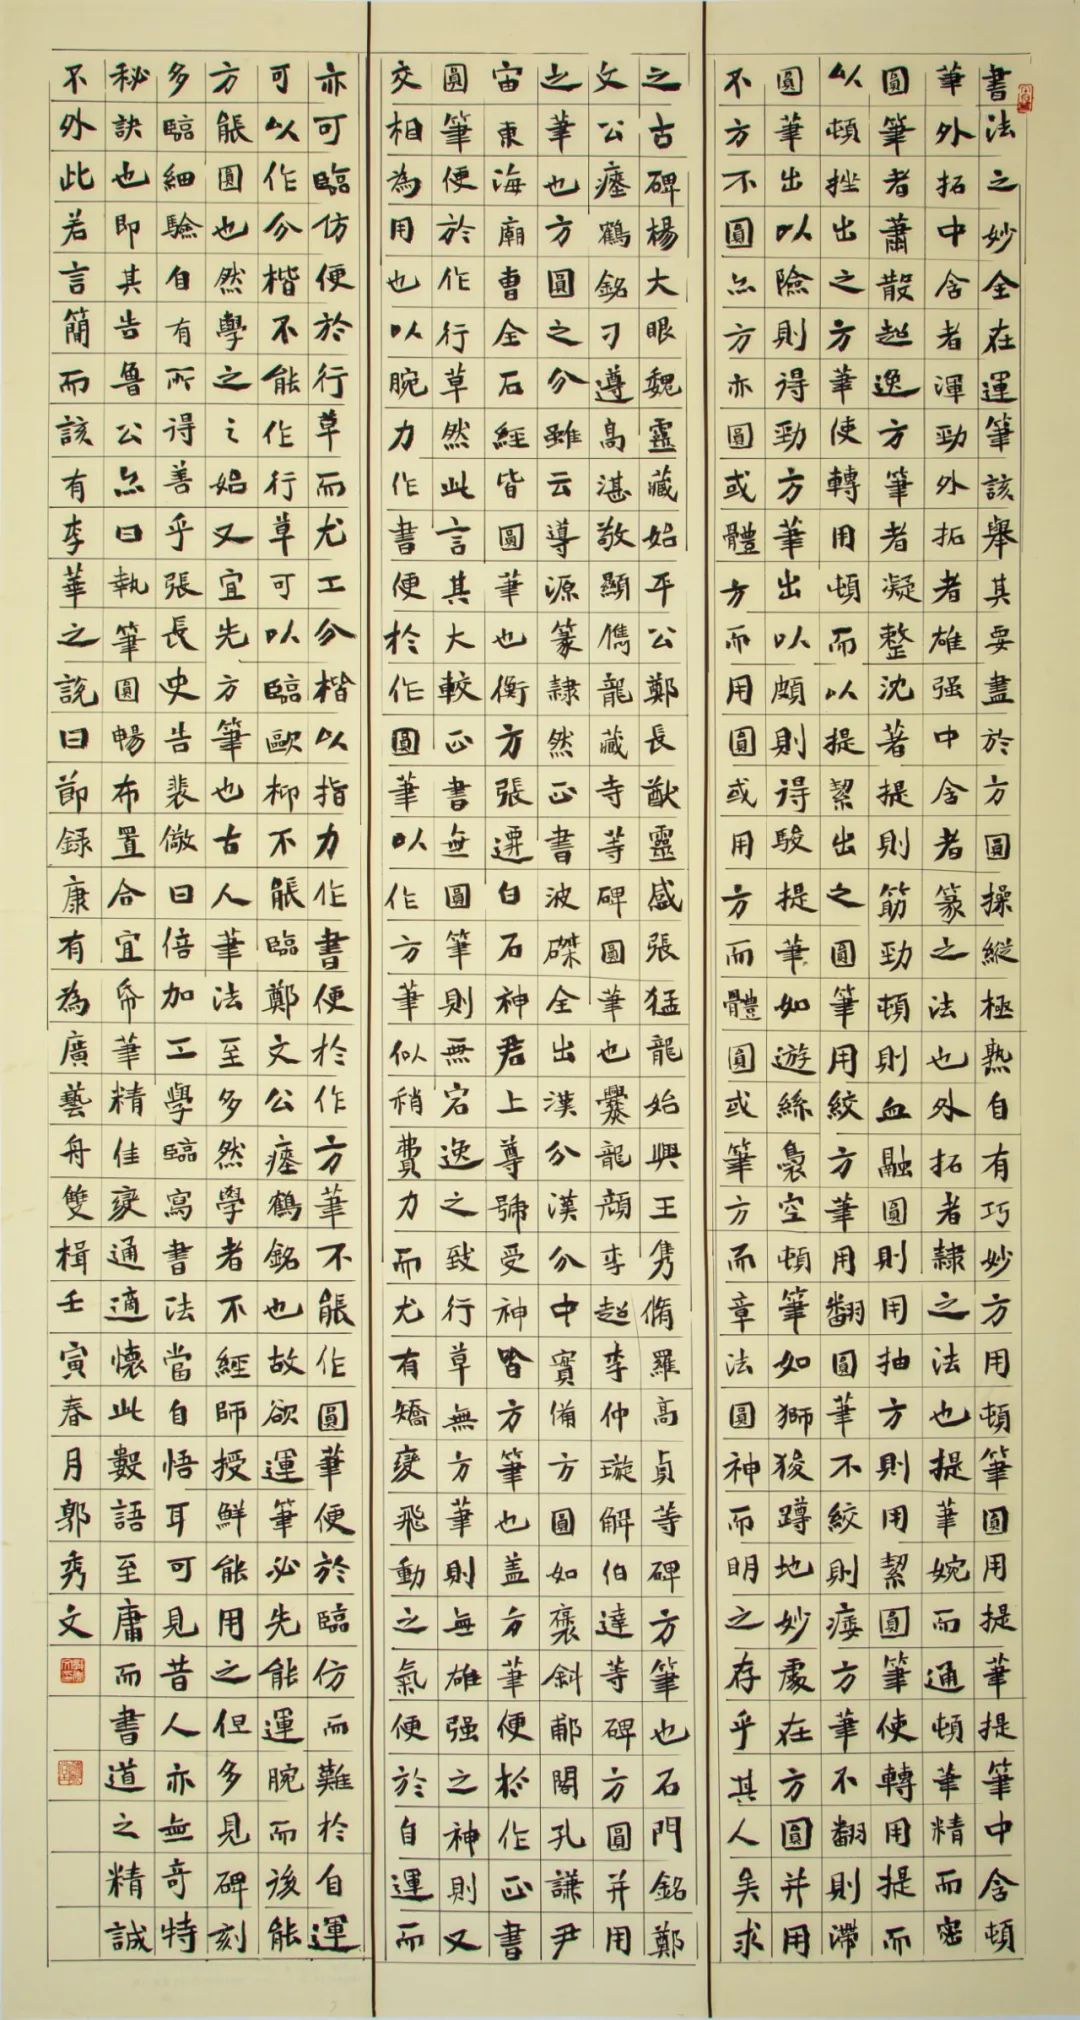 書法之妙全在運筆該舉其要盡於方圓操縱極熟自有巧妙方用頓筆圓用提筆提筆中含頓
筆外拓中含者渾勁外拓者雄强中含者篆之法也外拓者隸之法也提筆婉而通頓筆精而密
圓筆者蕭散超逸方筆者凝整沈著提則筋勁頓則血融圓則用抽方則用絜圓筆使轉用提而
以頓挫出之方筆使轉用頓而以提絜出之圓筆用絞方筆用翻圓筆不絞則痿方筆不翻則滯
圓筆出以險則得勁方筆出以頗則得駿提筆如遊絲裊空頓筆如獅狻蹲地妙處在方圓并用
不方不圓亦方亦圓或體方而用圓或用方而體圓或筆方而章法圓神而明之存乎其人矣求
之古碑楊大眼魏靈藏始平公鄭長猷靈感張猛龍始興王雋脩羅高貞等碑方筆也石門銘鄭
文公瘞鶴銘刁遵高湛敬顯儁龍藏寺等碑圓筆也爨龍顏李超李仲璇解伯達等碑方圓并用
之筆也方圓之分雖云導源篆隸然正書波磔全出漢分漢分中實備方圓如褒斜郙閣孔謙尹
宙東海廟曹全石經皆圓筆也衡方張遷白石神君上尊號受神眘方筆也蓋方筆便於作正書
圓筆便於作行草然此言其大較正書無圓筆則無宕逸之致行草無方筆則無雄强之神則又
交相為用也以腕力作書便於作圓筆以作方筆似稍費力而尤有矯變飛動之氣便於自運而
亦可臨仿便於行草而尤工分楷以指力作書便於作方筆不能作圓筆便於臨仿而難於自運
可以作分楷不能作行草可以臨歐柳不能臨鄭文公瘞鶴銘也故欲運筆必先能運腕而後能
方能圓也然學之之始又宜先方筆也古人筆法至多然學者不經師授鮮能用之但多見碑刻
多臨細驗自有所得善乎張長史告裴儆曰倍加工學臨寫書法當自悟耳可見昔人亦無奇特
秘訣也即其告魯公亦曰執筆圓暢布置合宜帋筆精佳變通適懷此數語至庸而書道之精誠
不外此若言簡而該有李華之說曰節録康有為廣藝舟雙楫壬寅春月郭秀文